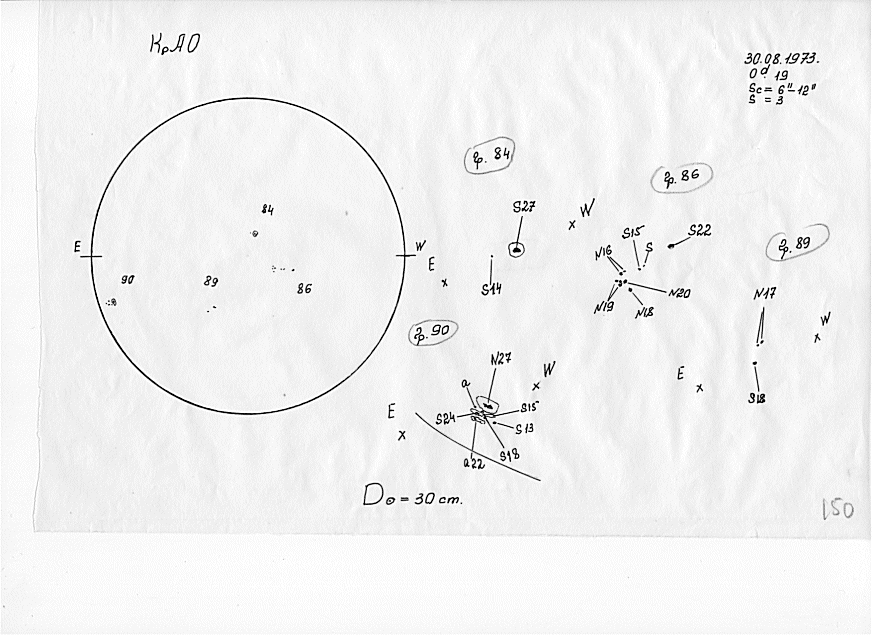 КрАО
30.08.1973.
0ᵈ.19
Sc = 6"-12"
S = 3
E
W
84
90
89
86
гр. 84
S27
W
E
S14
гр. 86
N16
S15
S
S22
N19
N18
N20
гр. 89
N17
W
E
S18
гр. 90
N27
W
a
E
S24
S15
S13
a22
S18
D⊙ = 30 cm.
150